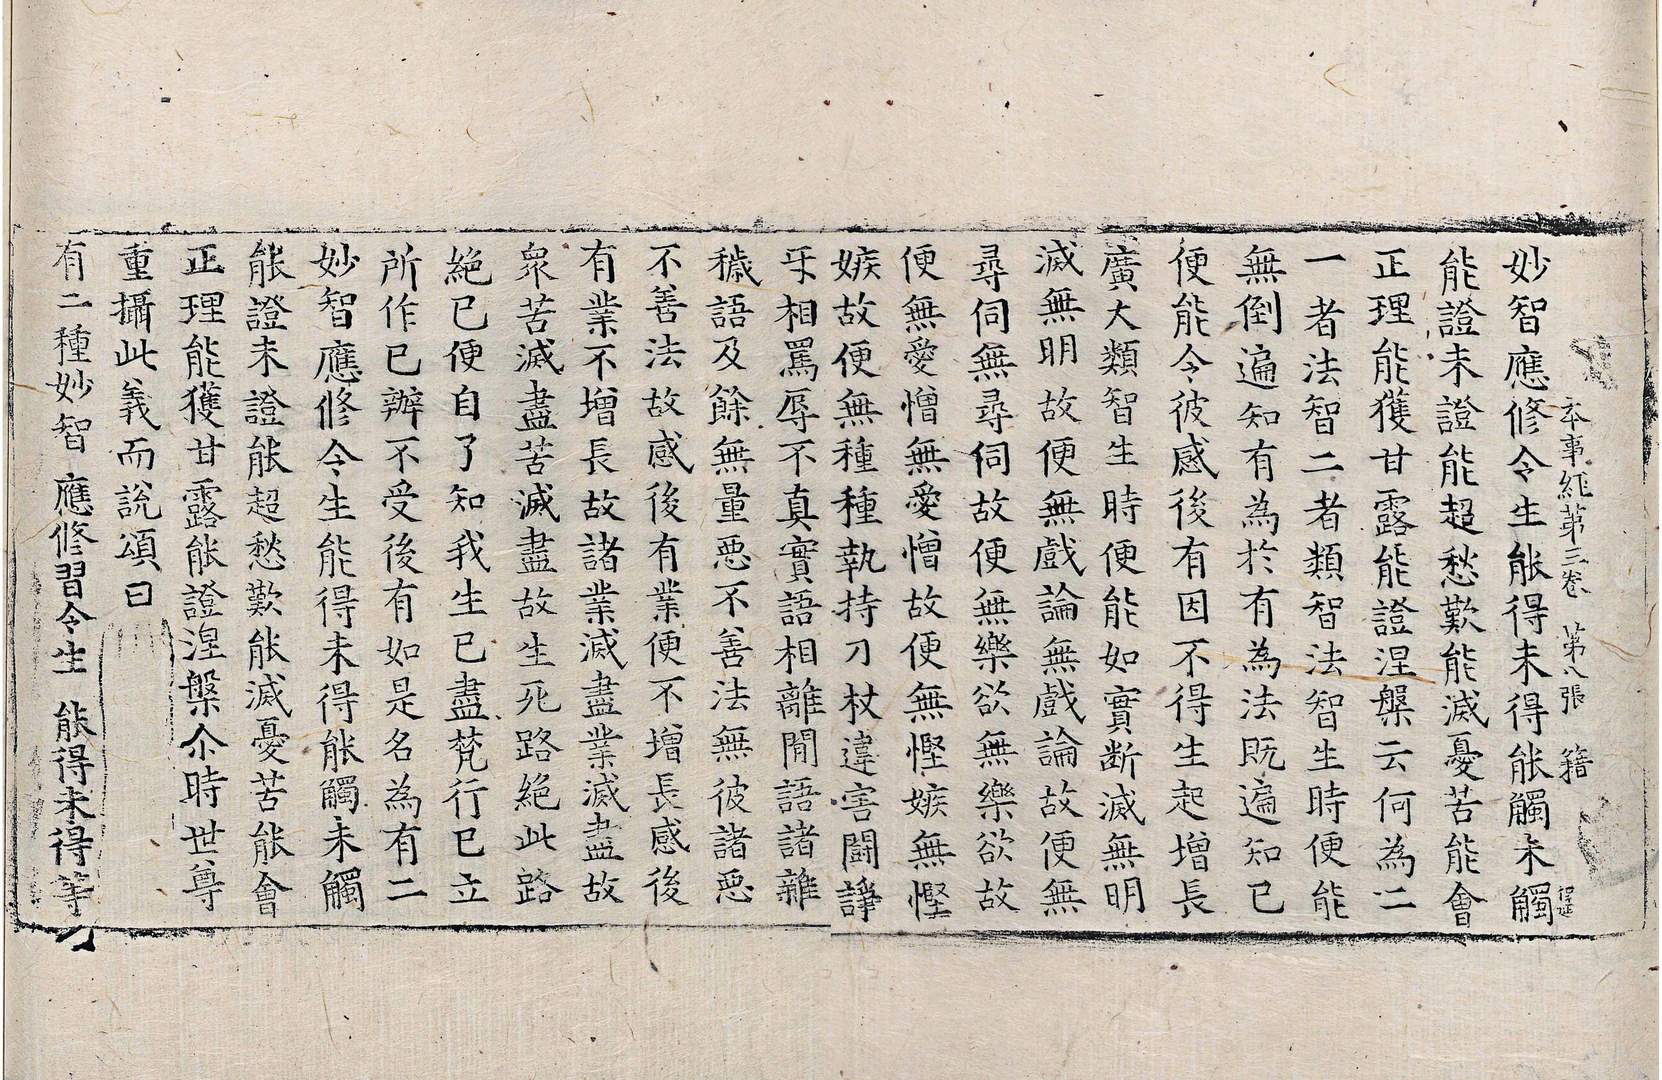 本事經第三卷　第八張　籍
妙智應修令生能得未得能觸未觸
能證未證能超愁歎能滅憂苦能會
正理能獲甘露能證涅槃云何為二
一者法智二者類智法智生時便能
無倒遍知有為於有為法既遍知已
便能令彼感後有因不得生起增長
廣大類智生時便能如實断滅無明
滅無明故便無戲論無戲論故便無
尋伺無尋伺故便無樂欲無樂欲故
便無愛憎無愛憎故便無慳嫉無慳
嫉故便無種種執持刀杖違害鬪諍
牙相罵辱不真實語相離間語諸雜
穢語及餘無量惡不善法無彼諸惡
不善法故感後有業便不增長感後
有業不增長故諸業滅盡業滅盡故
衆苦滅盡苦滅盡故生死路絕此路
絕已便自了知我生已盡梵行已立
所作已辦不受後有如是名為有二
妙智應修令生能得未得能觸未觸
能證未證能超愁歎能滅憂苦能會
正理能獲甘露能證涅槃尒時世尊
重攝此義而說頌曰
有二種妙智　應修習令生　能得未得等